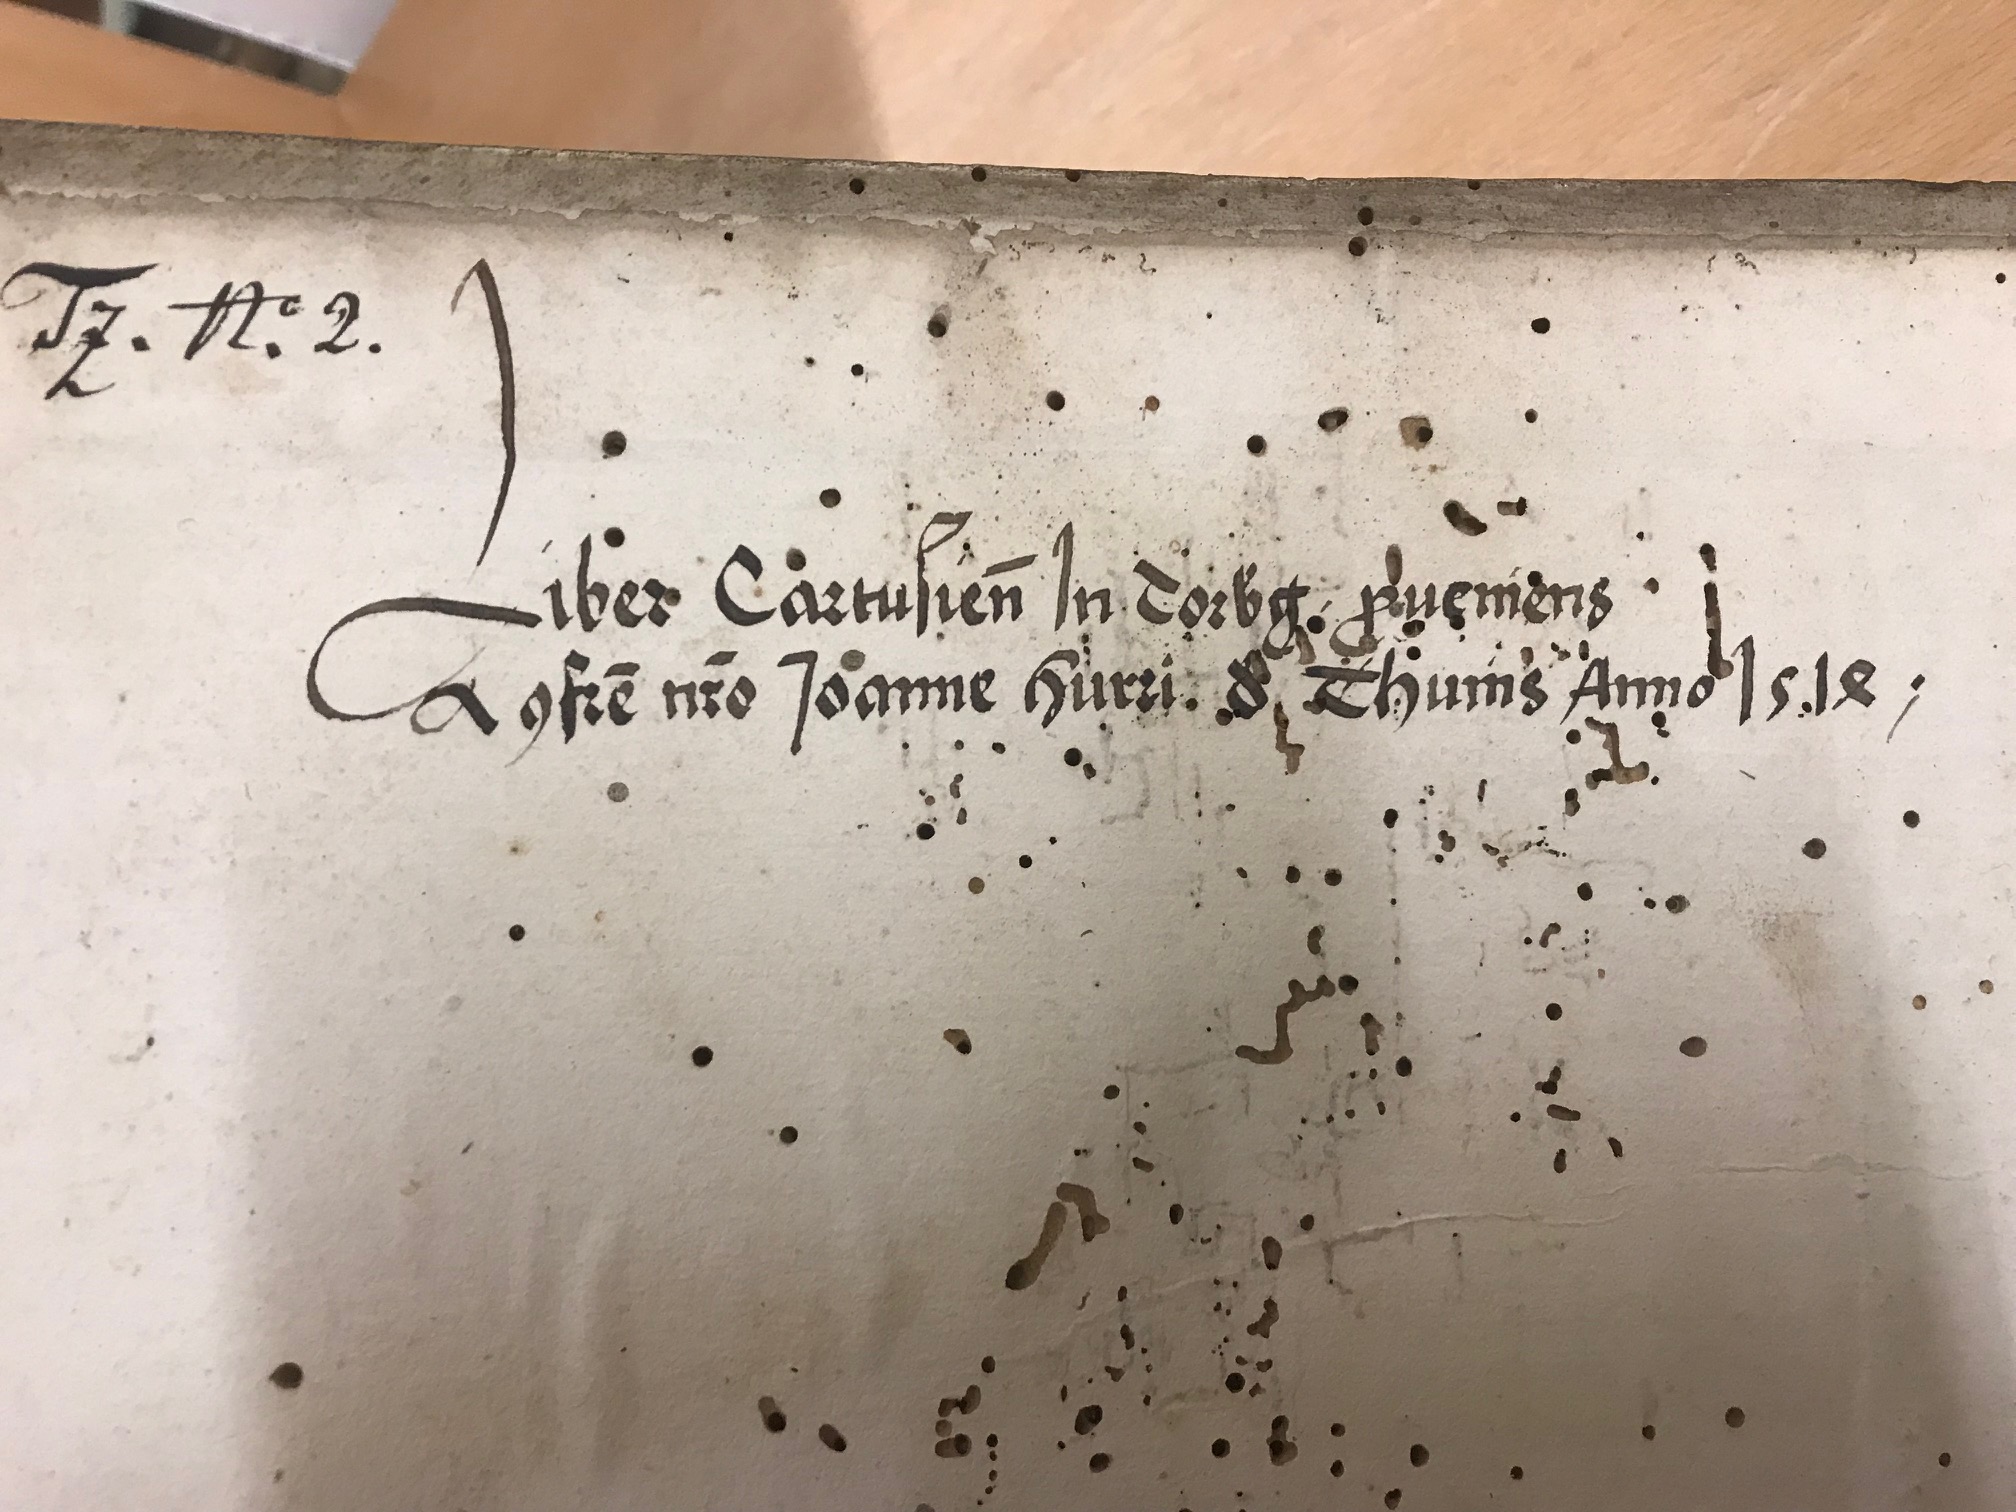 Tz. N.º 2.
Liber Cartusieñ In Torbg: ꝓueniens
A ꝯfrē nr̄o Joanne Hurri. de Thunis Anno 1518;